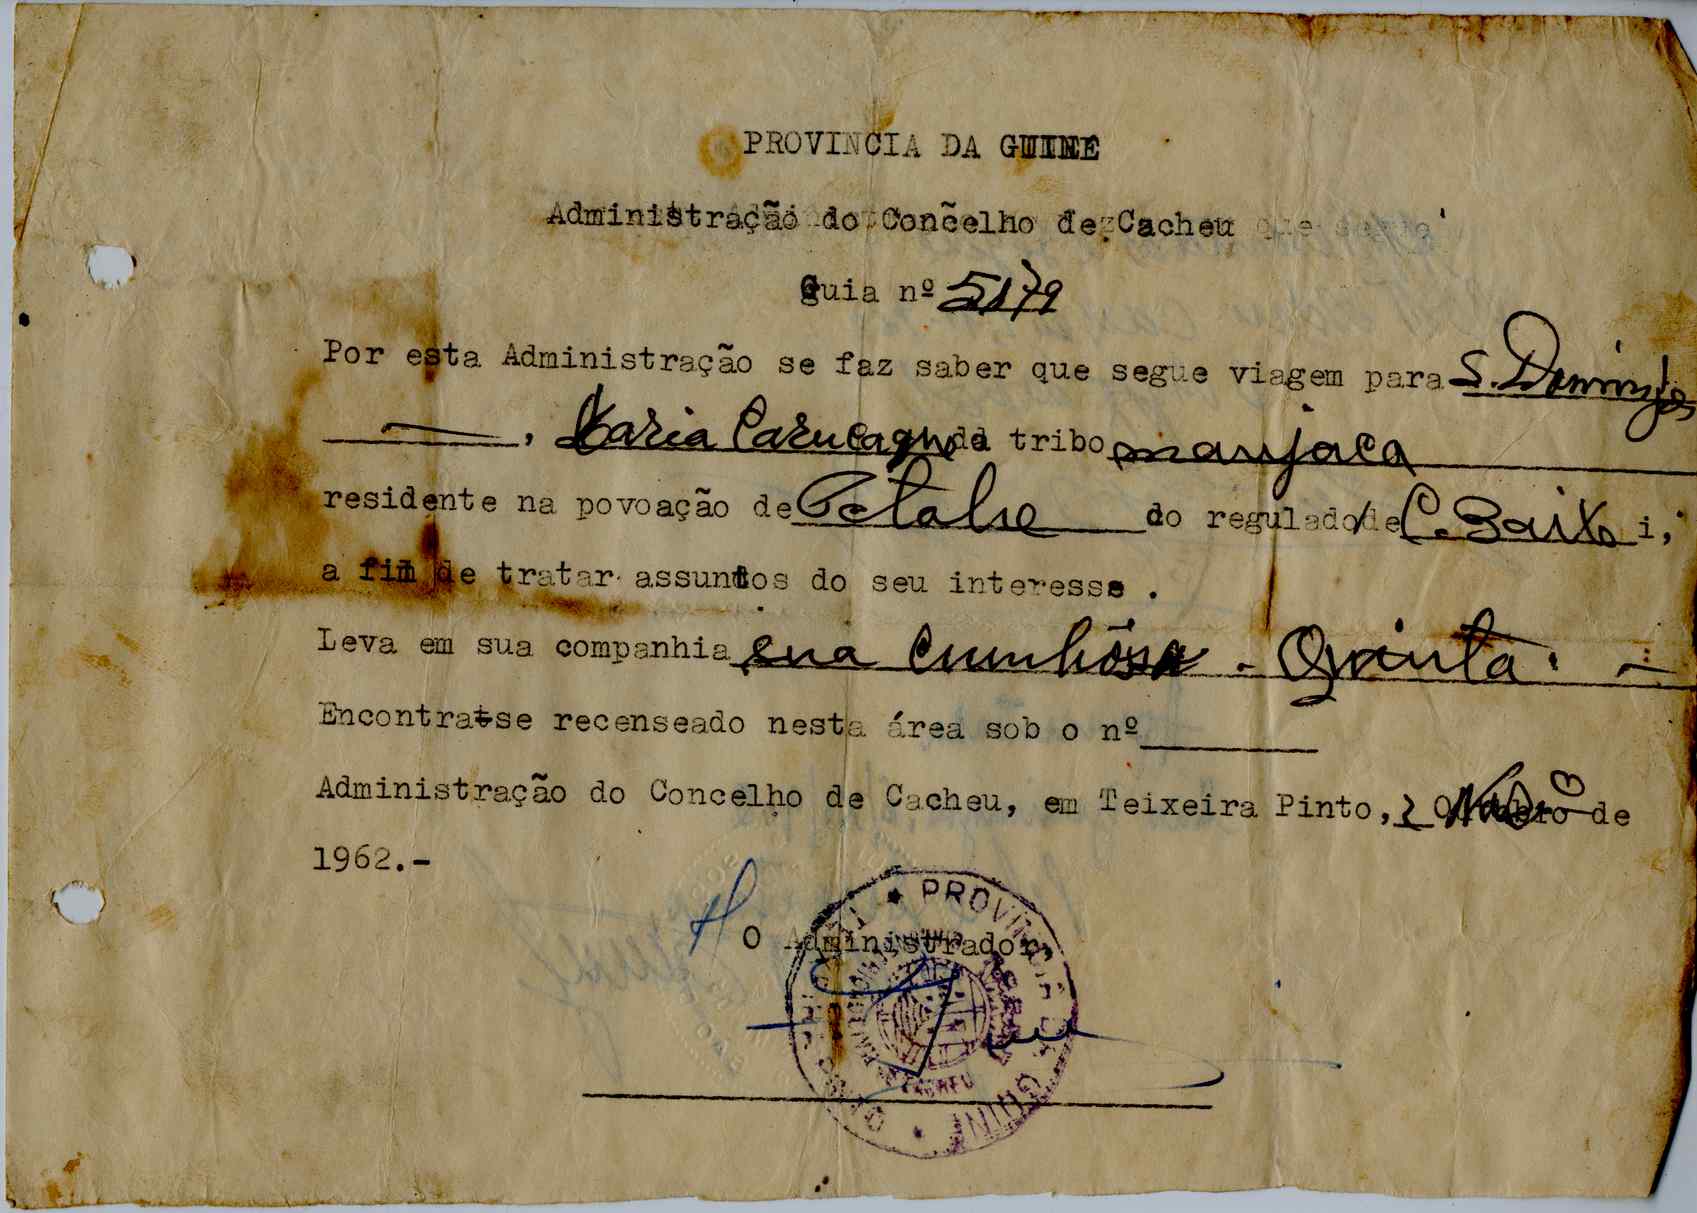 PROVINCIA DA GUINE
Administração do Concelho de Cacheu
Guia nº 5179
Por esta Administração se faz saber que segue viagem para S. Domingos
, Maria da tribo manjaca
residente na povoação de do regulado de C. Baixo i,
a fim de tratar assuntos do seu interesse .
Leva em sua companhia sua - Quinta . -
Encontra-se recenseado nesta área sob o nº
Administração do Concelho de Cacheu, em Teixeira Pinto, 2 de
1962.-
O Administrador,
PROVINCIA DA GUINÉ
CACHEU